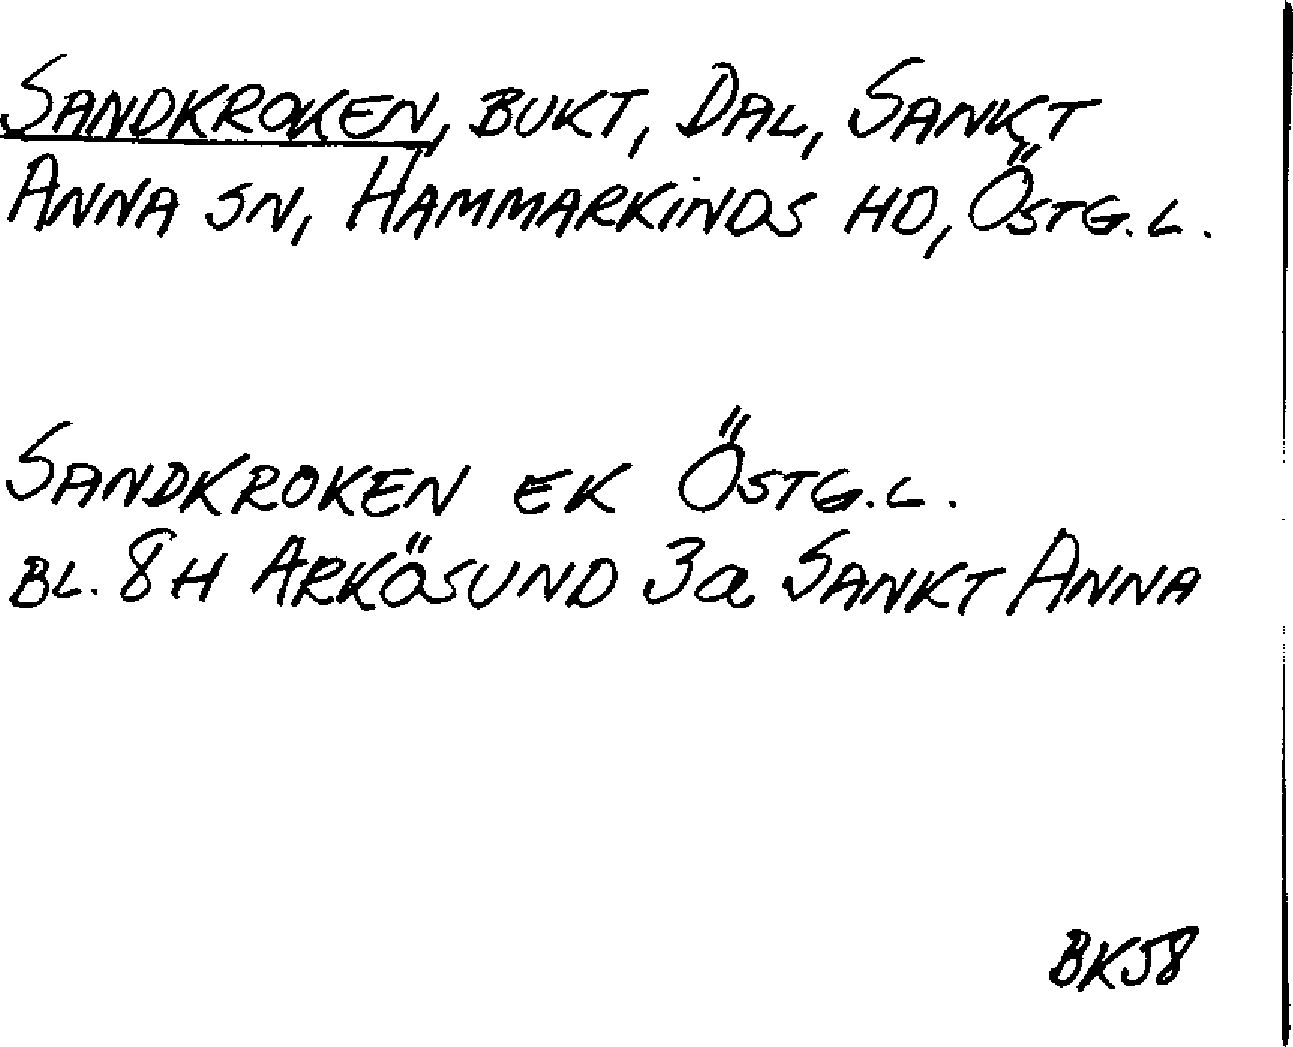 SANDKROKEN, BUKT, DAL, SANKT
ANNA SN, HAMMARKINDS HD, ÖSTG.L.
SANDKROKEN EK ÖSTG.L.
BL. 8H ARKÖSUND 3a SANKT ANNA
BK58